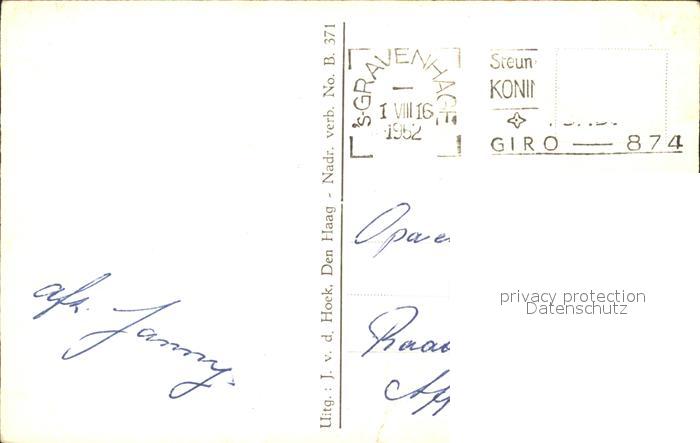 afz. Janny.
Uitg.: J. v. d. Hoek, Den Haag - Nadr. verb. No. B. 371
's-GRAVENHAGE
1 VIII 16
1952
Steun
KONIN
GIRO — 874
Opa e
privacy protection
Datenschutz